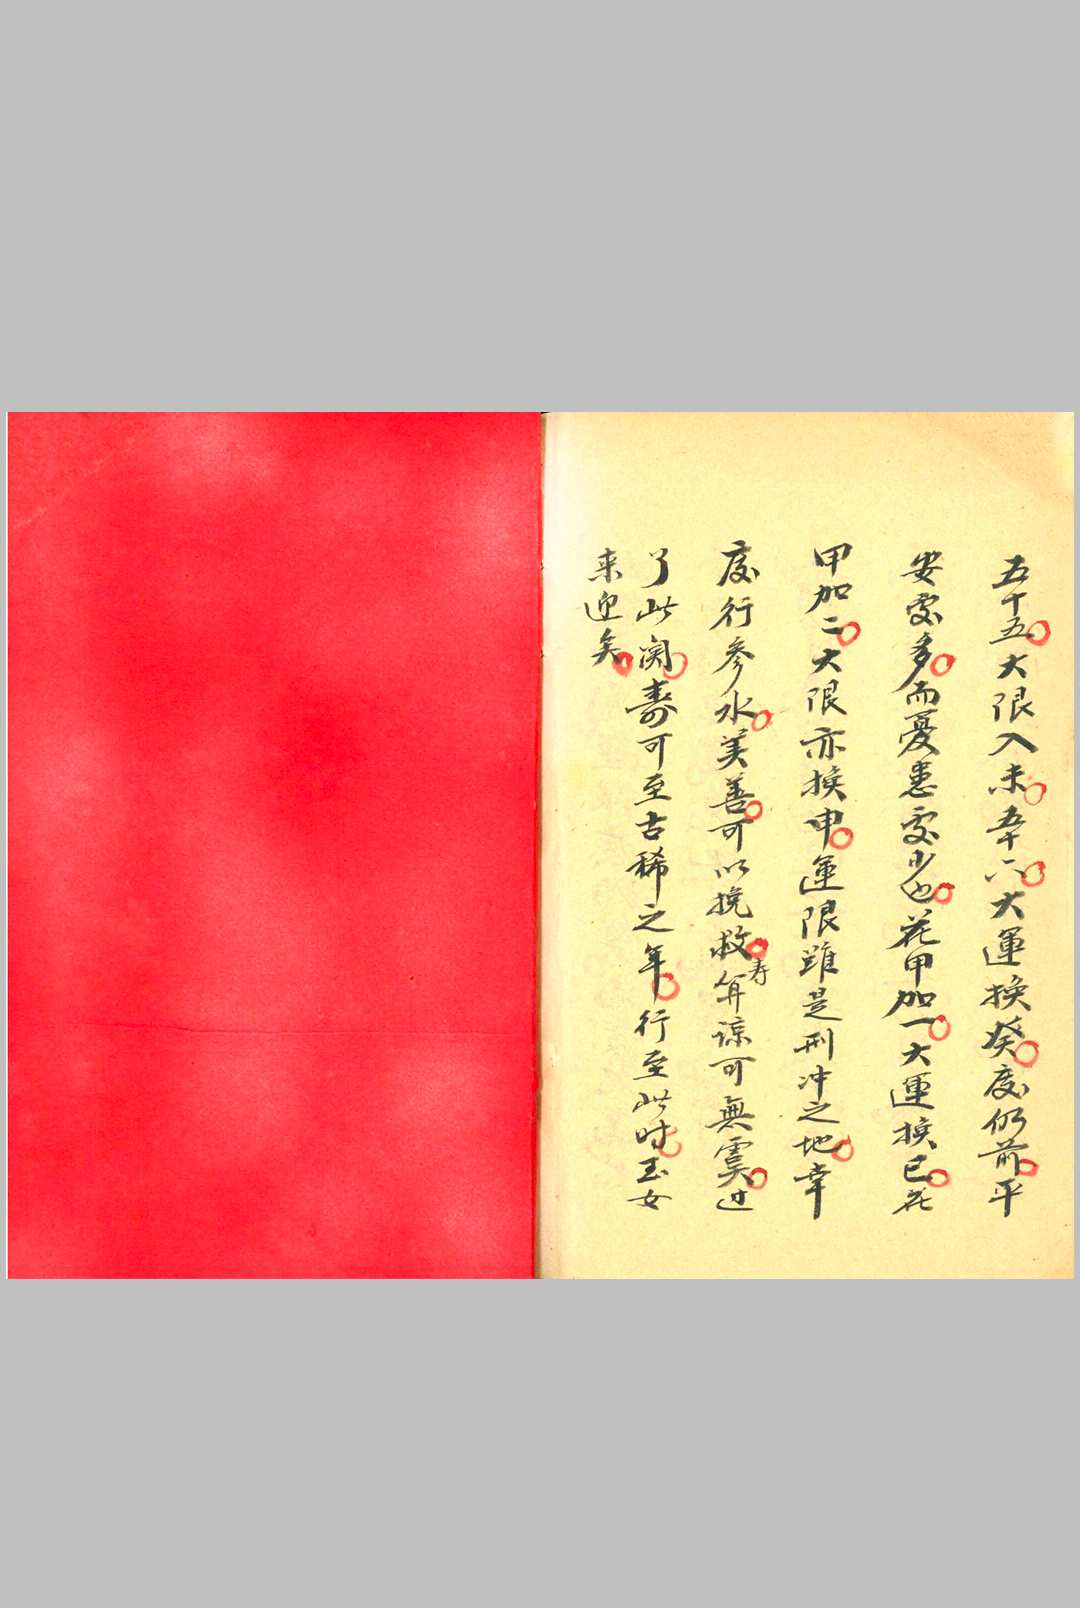 五十五大限入未五十六大運換癸度仍前平
安處多而憂患處少也花甲加一大運換巳花
甲加二大限亦換申運限雖是刑冲之地幸
度行參水美善可以挽救寿算諒可無虞过
了此関壽可至古稀之年行至此时玉女
来迎矣